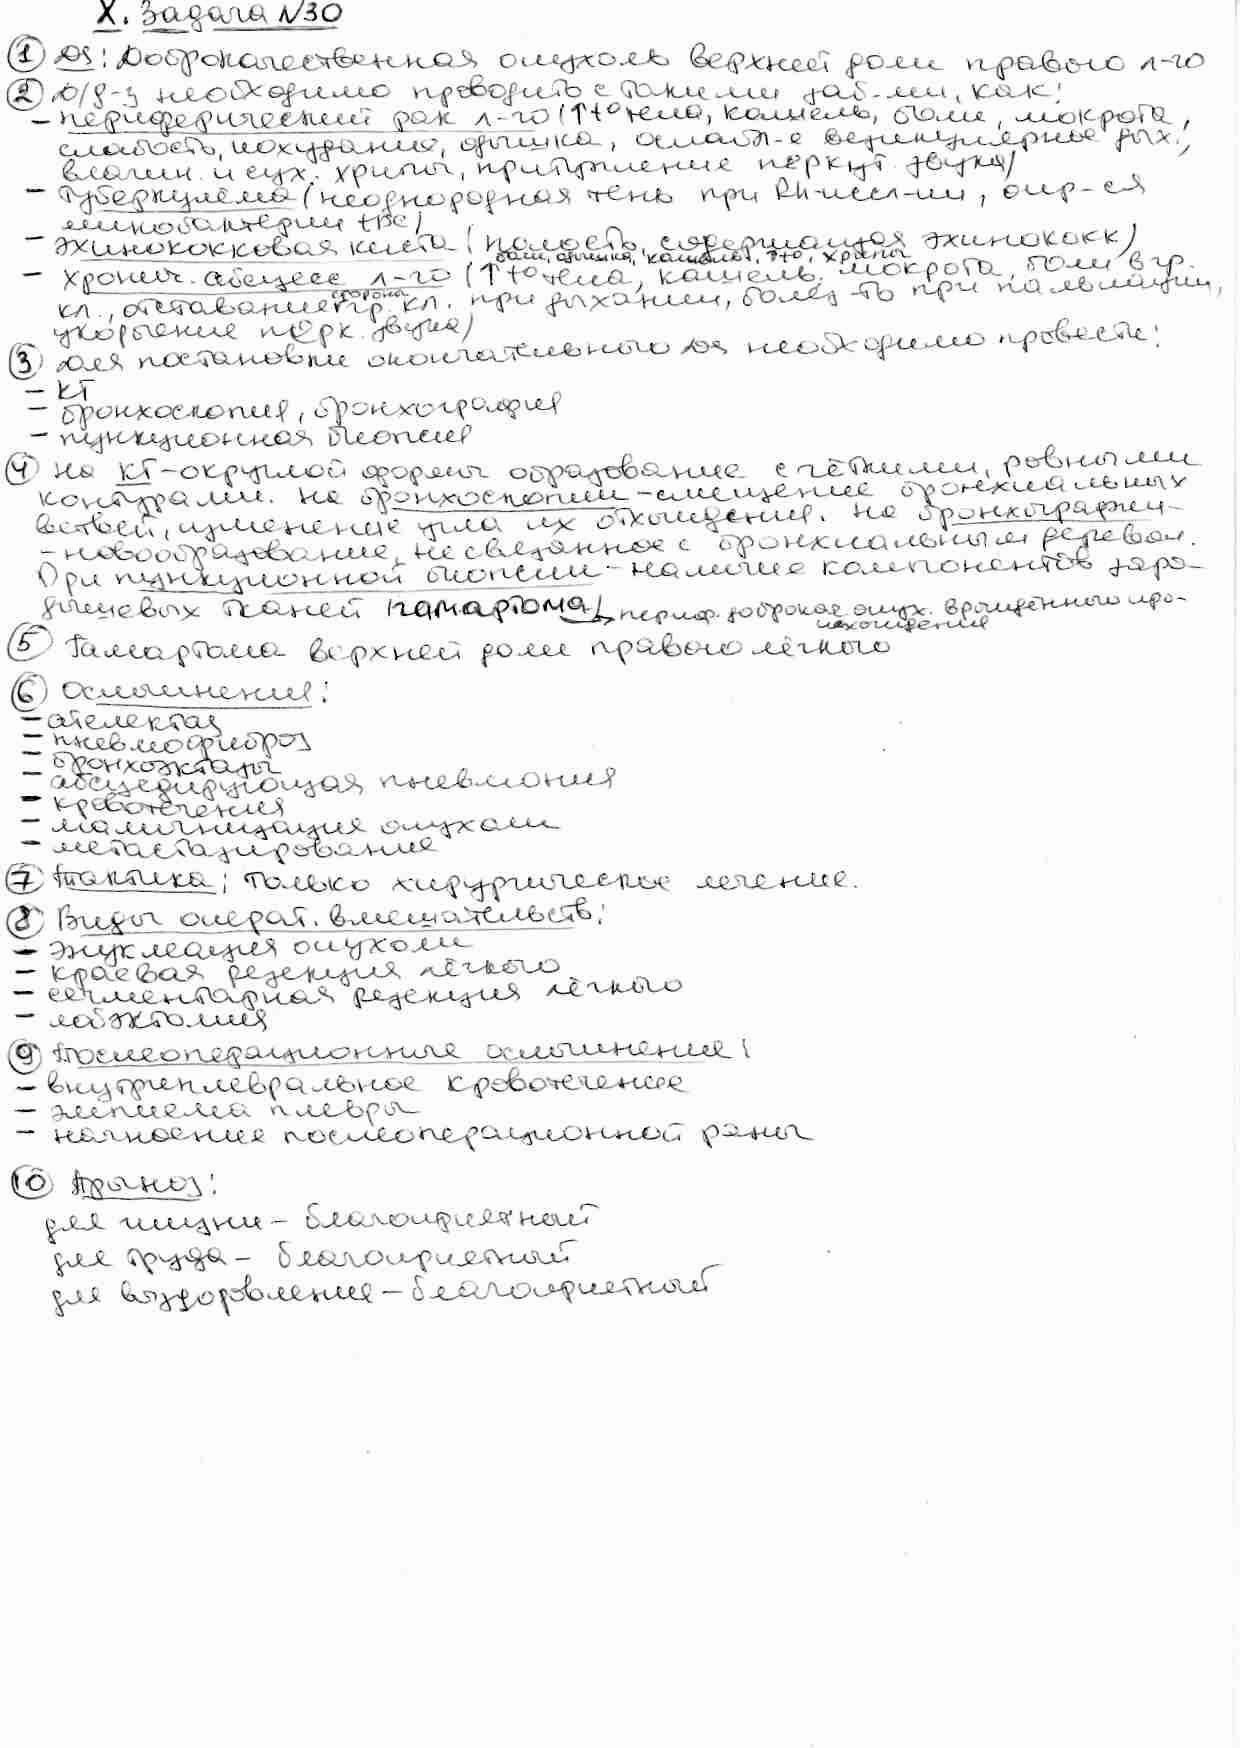 X. Задача №30
① Ds: Доброкачественная опухоль верхней доли правого л-го
② D/д-з необходимо проводить с такими заб-ми, как:
- периферический рак л-го (↑t° тела, кашель, боли, мокрота,
слабость, похудание, одышка, ослабл-е везикулярное дых.,
влажн. и сух. хрипы, притупление перкут. звука)
- туберкулёма (неоднородная тень при Rh-иссл-ии, опр-ся
микобактерии tbc)
- эхинококковая киста (полость, содержащая эхинококк)
боли, одышка, кашель, t°, хрипы
- хронич. абсцесс л-го (↑t° тела, кашель, мокрота, боли в гр.
кл., отставание стороны гр. кл. при дыхании, болез-ть при пальпации,
укорочение перк. звука)
③ Для постановки окончательного Ds необходимо провести:
- КТ
- бронхоскопия, бронхография
- пункционная биопсия
④ На КТ-округлой формы образование с чёткими, ровными
контурами. На бронхоскопии-смещение бронхиальных
ветвей, изменение угла их отхождения. На бронхографии-
-новообразование, не связанное с бронхиальным деревом.
При пункционной биопсии-наличие компонентов заро-
дышевых тканей гамартома ↳ периф. доброкач. опух. врождённого про-
исхождения
⑤ Гамартома верхней доли правого лёгкого
⑥ Осложнения:
- ателектаз
- пневмофиброз
- бронхоэктазы
- абсцедирующая пневмония
- кровотечения
- малигнизация опухоли
- метастазирование
⑦ Тактика: только хирургическое лечение.
⑧ Виды операт. вмешательств:
- энуклеация опухоли
- краевая резекция лёгкого
- сегментарная резекция лёгкого
- лобэктомия
⑨ Послеоперационные осложнения:
- внутриплевральное кровотечение
- эмпиема плевры
- нагноение послеоперационной раны
⑩ Прогноз:
для жизни - благоприятный
для труда - благоприятный
для выздоровления - благоприятный